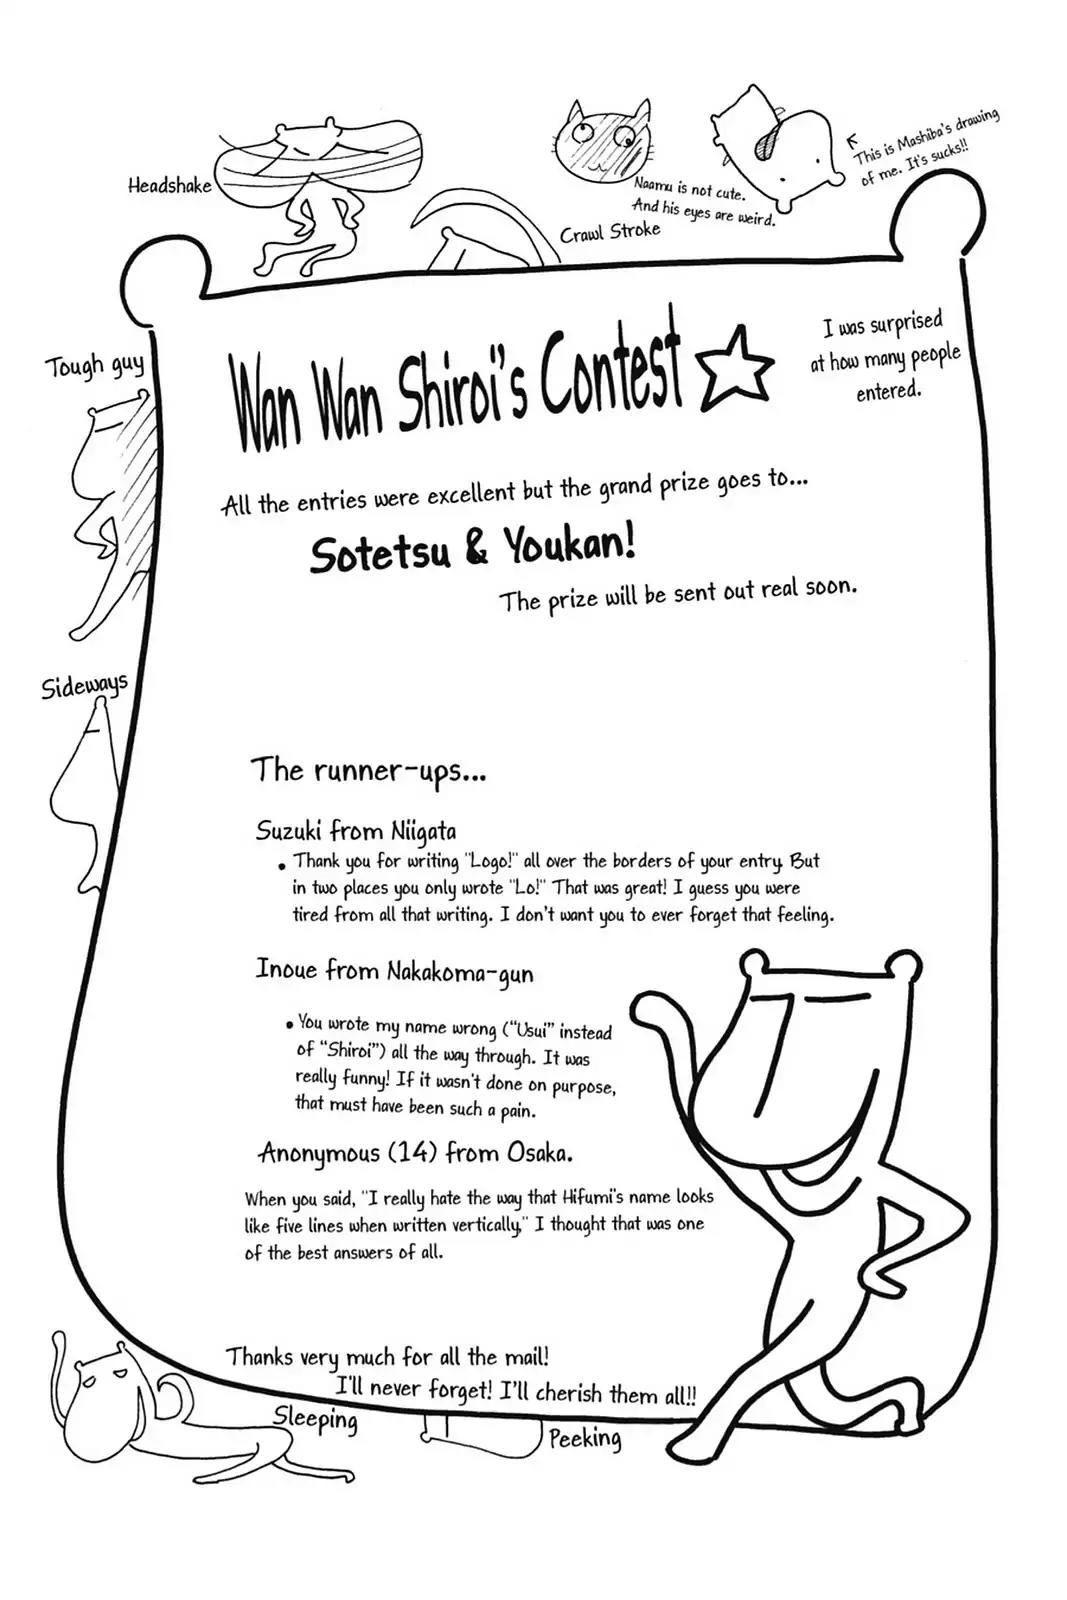 Headshake
Naamu is not cute.
And his eyes are weird.
This is Mashiba's drawing
of me. It's sucks!!
Crawl Stroke
Tough guy
Wan Wan Shiroi's Contest
I was surprised
at how many people
entered.
All the entries were excellent but the grand prize goes to...
Sotetsu & Youkan!
The prize will be sent out real soon.
Sideways
The runner-ups...
Suzuki from Niigata
• Thank you for writing "Logo!" all over the borders of your entry. But
in two places you only wrote "Lo!" That was great! I guess you were
tired from all that writing. I don't want you to ever forget that feeling.
Inoue from Nakakoma-gun
• You wrote my name wrong ("Usui" instead
of "Shiroi") all the way through. It was
really funny! If it wasn't done on purpose,
that must have been such a pain.
Anonymous (14) from Osaka.
When you said, "I really hate the way that Hifumi's name looks
like five lines when written vertically," I thought that was one
of the best answers of all.
Thanks very much for all the mail!
I'll never forget! I'll cherish them all!!
Sleeping
Peeking